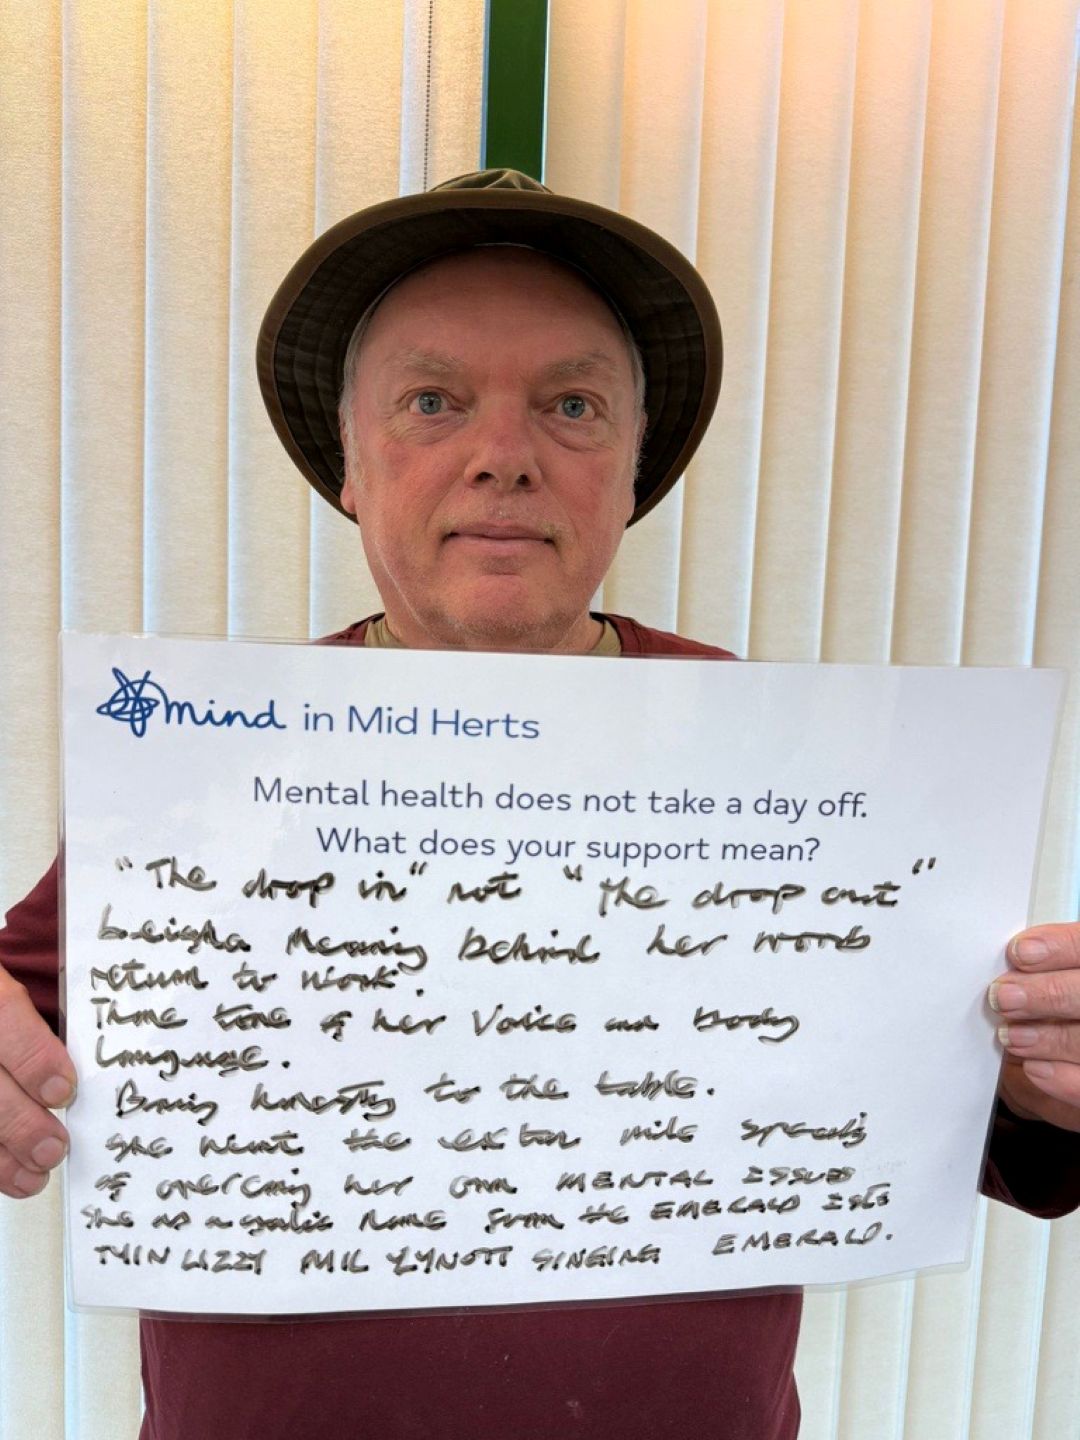 mind in Mid Herts
Mental health does not take a day off.
What does your support mean?
"The drop in" not "the drop out"
Leigha Meaning behind her words
return to work.
tone of her Voice and body
Language.
Bring honesty to the table.
She went the extra mile speaking
of overcoming her own MENTAL ISSUES
She as a name from the EMERALD ISLE
THIN LIZZY PHIL LYNOTT SINGING EMERALD.